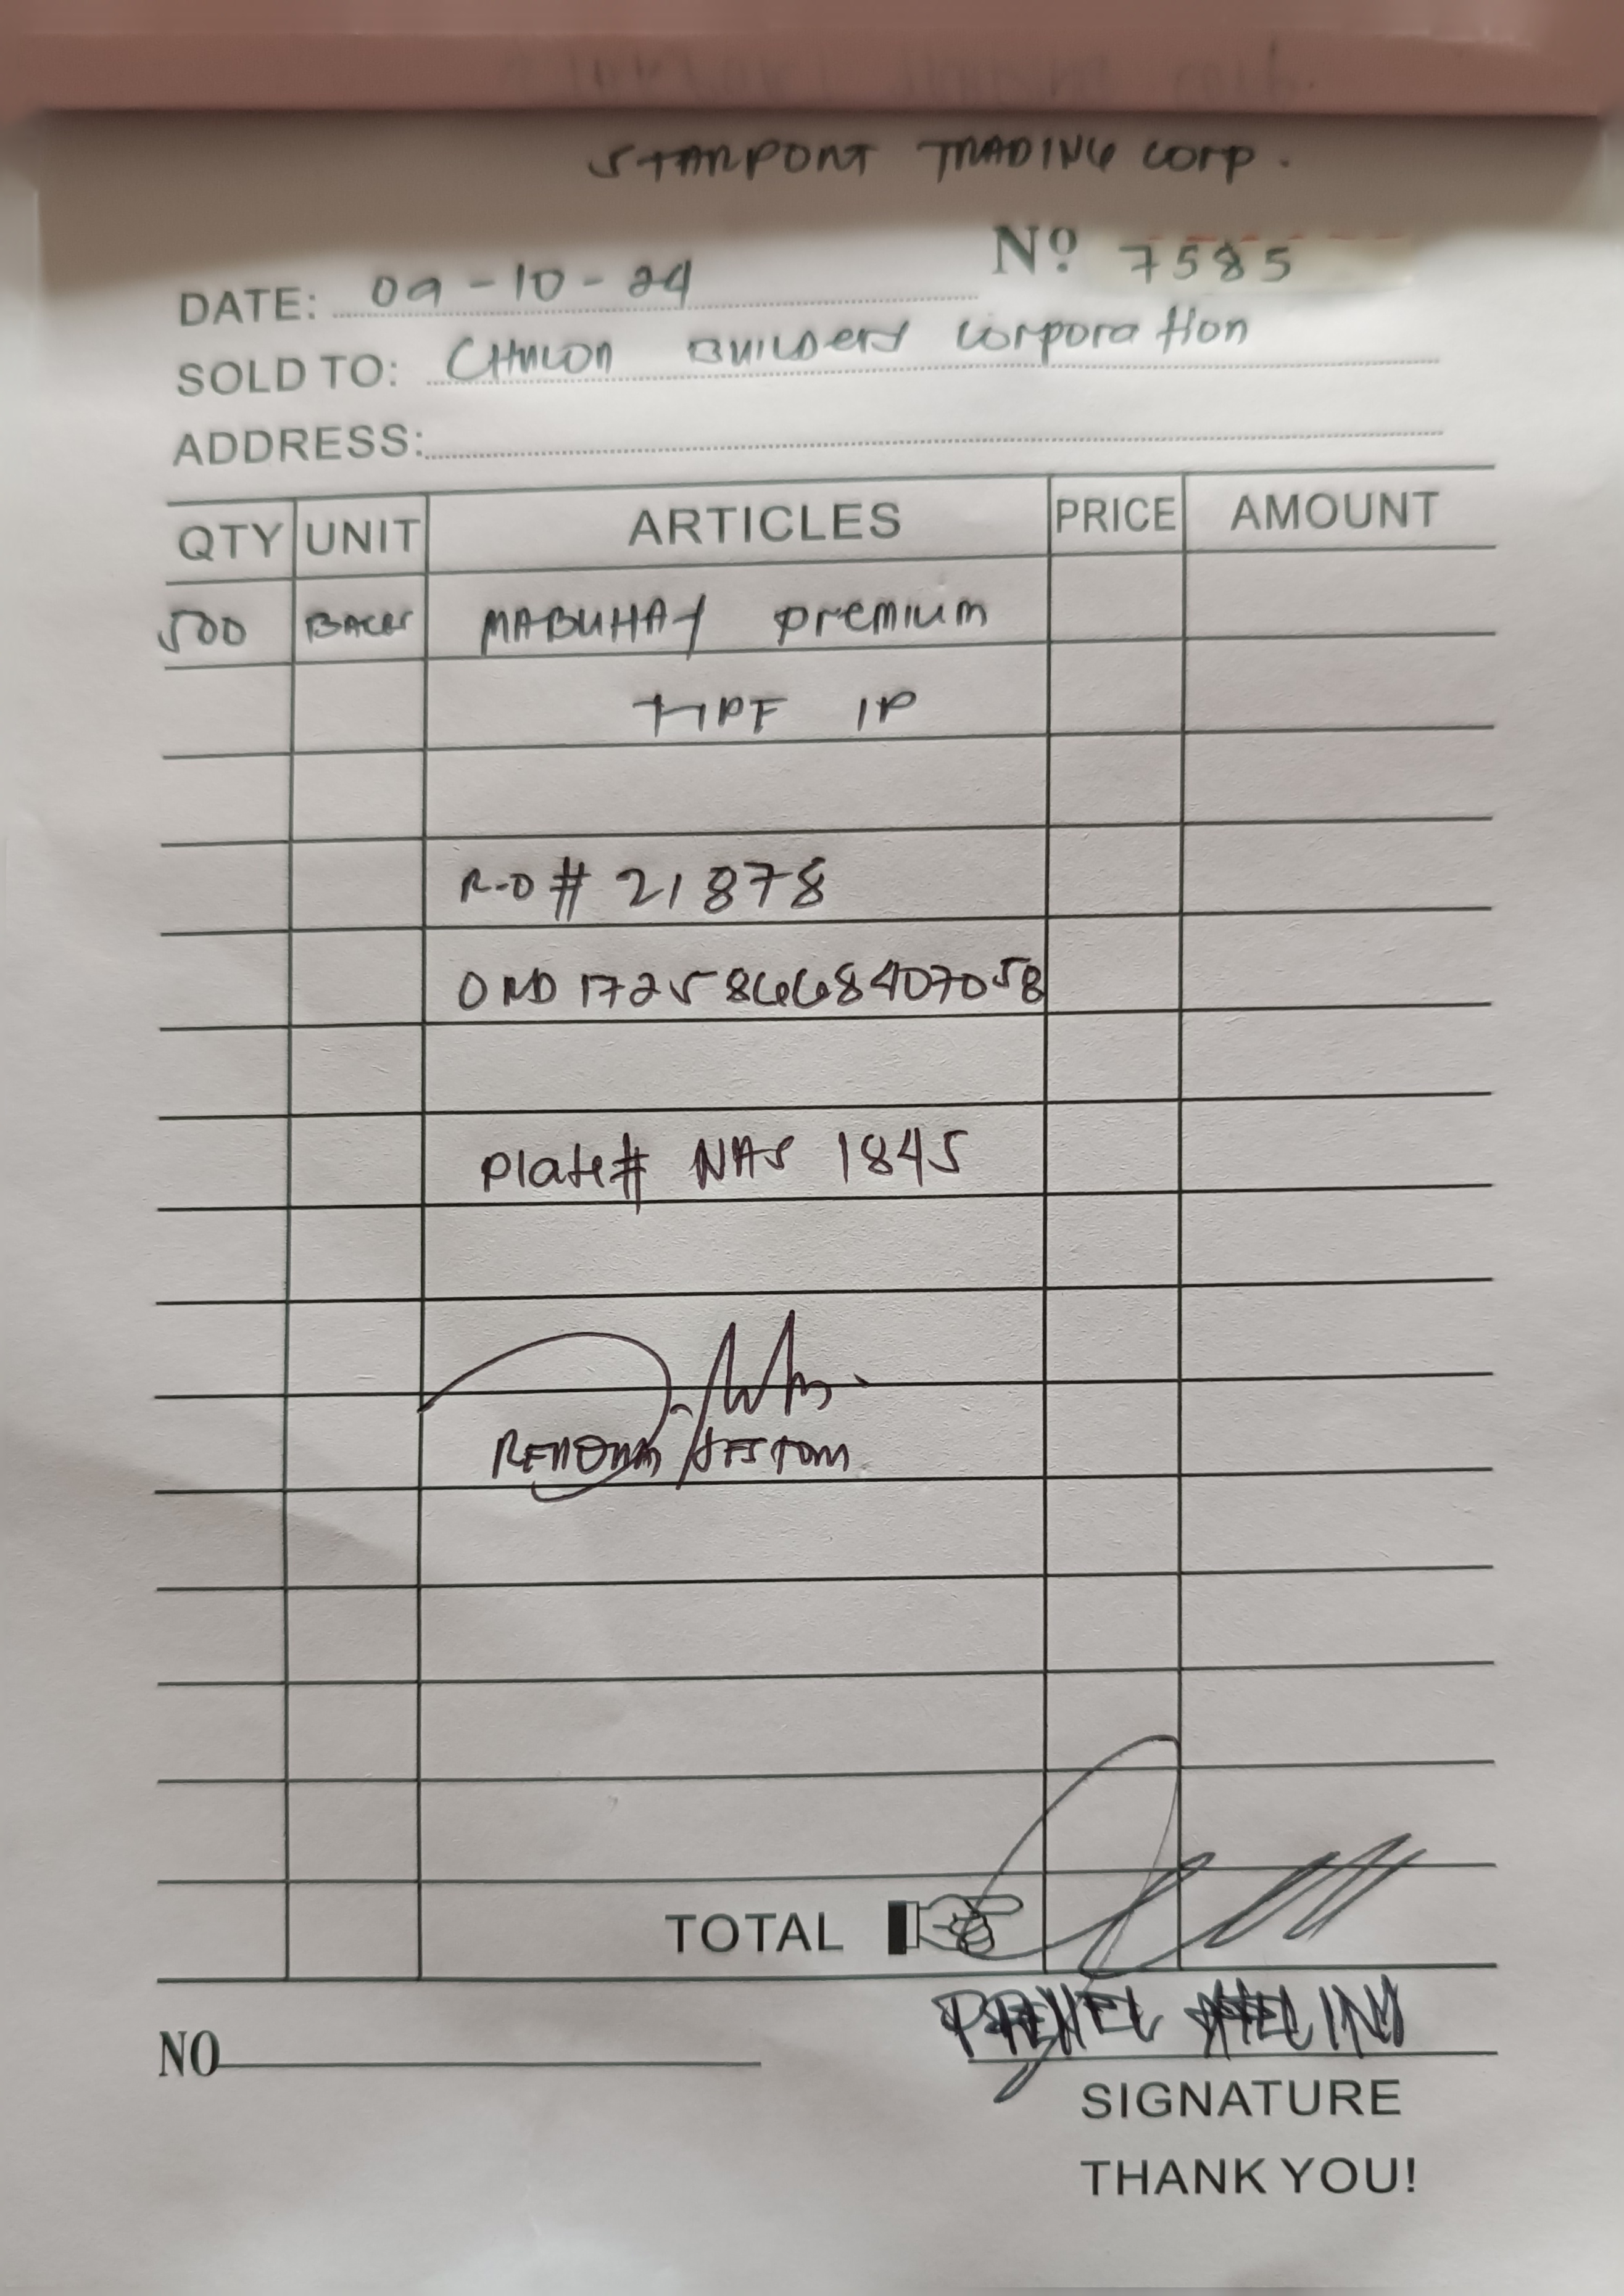 STARPORT TRADING Corp.
Nº 7585
DATE: 09-10-24
SOLD TO: BUILDERS Corporation
ADDRESS:
QTY UNIT ARTICLES PRICE AMOUNT
500 BAGS MABUHAY premium
IP
R-O # 21878
ORD 17258668407058
Plate# NAS 1845
TOTAL
NO
SIGNATURE
THANK YOU!